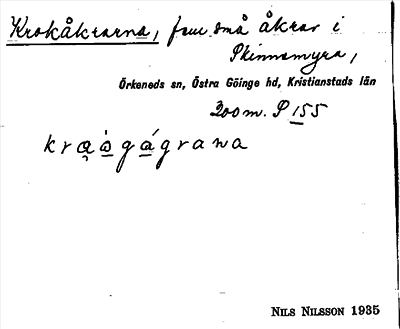 Krokåkrarna, fem små åkrar i
Skinnsmyra,
Örkeneds sn, Östra Göinge hd, Kristianstads län
200 m. S 155
kra̱ò̱gá̱grana
NILS NILSSON 1935